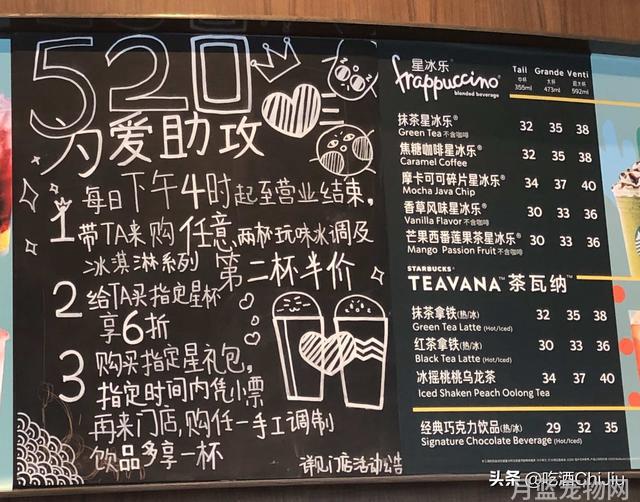 520
为爱助攻
每日下午4时起至营业结束，
1 带TA来购任意两杯玩味冰调及
冰淇淋系列 第二杯半价
2 给TA买指定星杯
享6折
3 购买指定星礼包，
指定时间内凭小票
再来门店，购任一手工调制
饮品多享一杯
详见门店活动公告
星冰乐®
frappuccino®
blended beverage
Tall Grande Venti
中杯 大杯 超大杯
355ml 473ml 592ml
抹茶星冰乐® 32 35 38
Green Tea 不含咖啡
焦糖咖啡星冰乐® 32 35 38
Caramel Coffee
摩卡可可碎片星冰乐® 34 37 40
Mocha Java Chip
香草风味星冰乐® 30 33 36
Vanilla Flavor 不含咖啡
芒果西番莲果茶星冰乐® 30 33 36
Mango Passion Fruit 不含咖啡
STARBUCKS®
TEAVANA™ 茶瓦纳™
抹茶拿铁(热/冰) 32 35 38
Green Tea Latte (Hot/Iced)
红茶拿铁(热/冰) 30 33 36
Black Tea Latte (Hot/Iced)
冰摇桃桃乌龙茶 34 37 40
Iced Shaken Peach Oolong Tea
经典巧克力饮品(热/冰) 29 32 35
Signature Chocolate Beverage (Hot/Iced)
头条 @吃酒Chi Jiu
月蓝宠物网